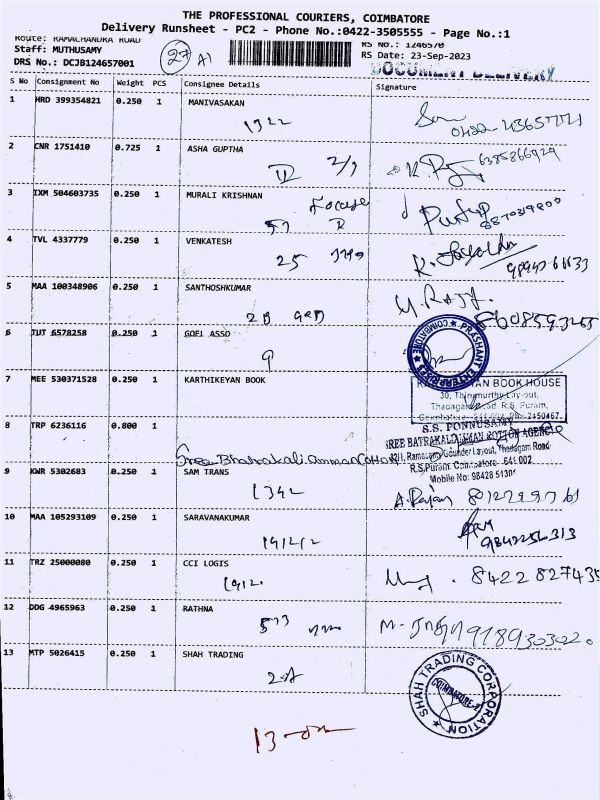 THE PROFESSIONAL COURIERS, COIMBATORE
Delivery Runsheet - PC2 - Phone No.:0422-3505555 - Page No.:1
Route: RAMACHANDRA ROAD
RS No.: 1246570
Staff: MUTHUSAMY
27 A1
RS Date: 23-Sep-2023
DRS No.: DCJB124657001
DOCUMENT DELIVERY
S No Consignment No Weight PCS Consignee Details Signature
1 HRD 399354821 0.250 1 MANIVASAKAN
1322
2 CNR 1751410 0.725 1 ASHA GUPTHA
6385866929
3 IXM 504603735 0.250 1 MURALI KRISHNAN
57 R
4 TVL 4337779 0.250 1 VENKATESH
25
5 MAA 100348906 0.250 1 SANTHOSHKUMAR
2B GRD
6 TUT 6578258 0.250 1 GOEL ASSO
9
PRASHANT ENTERPRISES COIMBATORE
7 MEE 530371528 0.250 1 KARTHIKEYAN BOOK
KARTHIKEYAN BOOK HOUSE
30, Thirumurthy Lay-out,
Thadagam Road, R.S. Puram,
Coimbatore- 641 002. Ph: 2450467
8 TRP 6236116 0.800 1
S.S. PONNUSAMY
SREE BATRAKALIAMMAN COTTON AGENCY
Ramasamy Gounder Layout, Thadagam Road
R.S.Puram, Coimbatore- 641 002
Mobile No: 98428 51301
Sree Bhatrakaliamman Cotton
9 KWR 5302683 0.250 1 SAM TRANS
1342
A. Rajan
10 MAA 105293109 0.250 1 SARAVANAKUMAR
9842256313
11 TRZ 25000080 0.250 1 CCI LOGIS
1912
8422827435
12 DDG 4965963 0.250 1 RATHNA
573
13 MTP 5026415 0.250 1 SHAH TRADING
2A
SHAH TRADING CORPORATION COIMBATORE-2
13